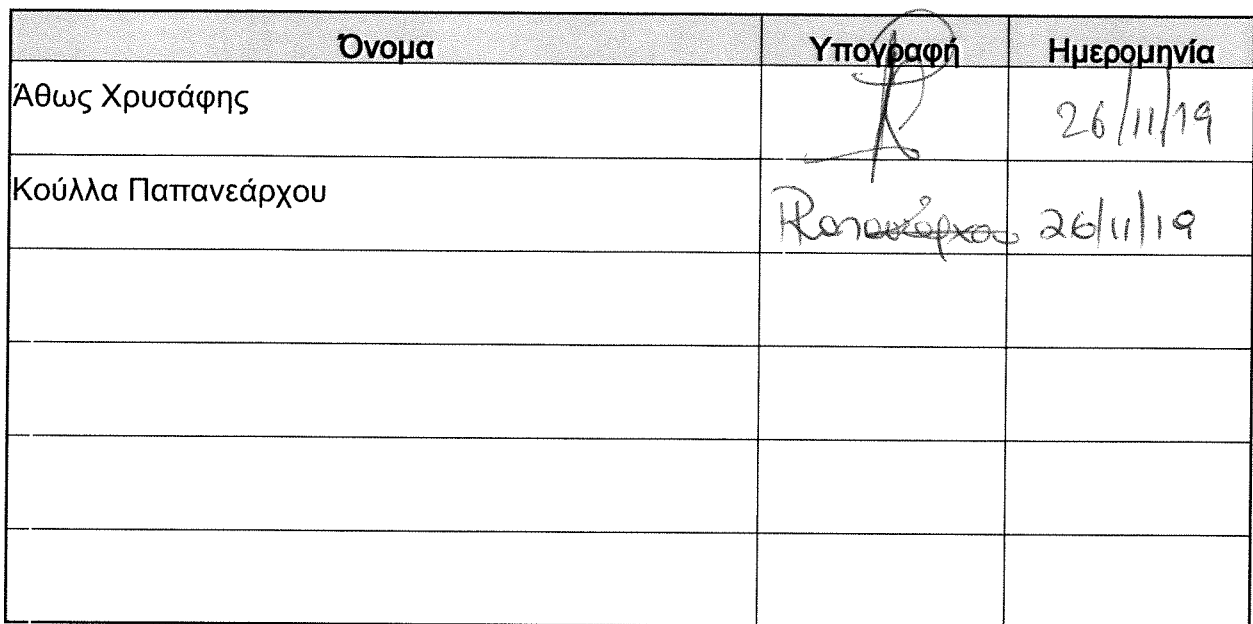 Όνομα Υπογραφή Ημερομηνία
Άθως Χρυσάφης 26/11/19
Κούλλα Παπανεάρχου 26/11/19